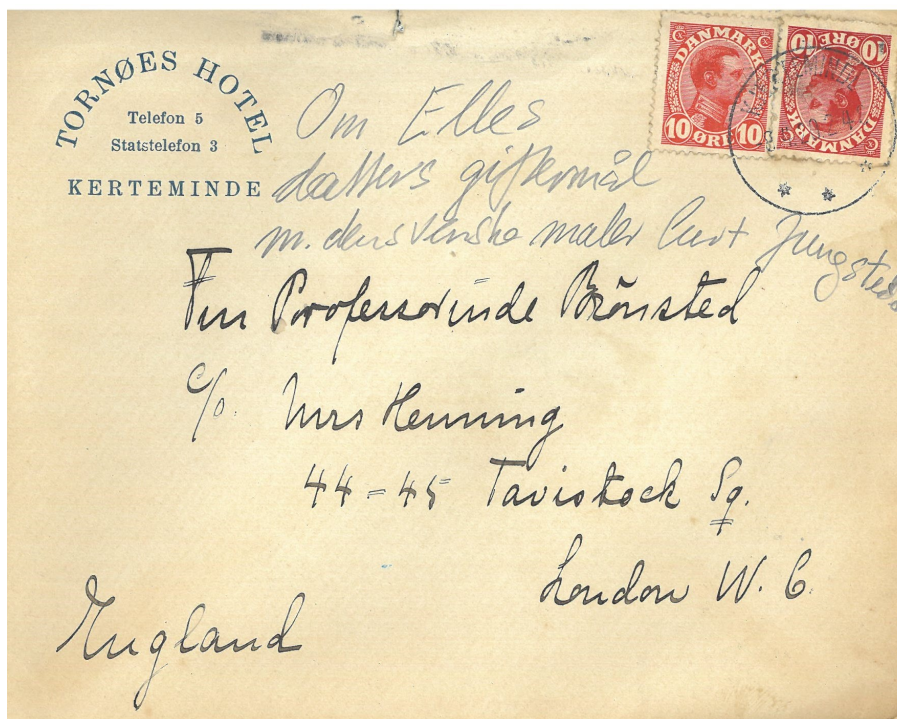 TORNØES HOTEL
Telefon 5
Statstelefon 3
KERTEMINDE
DANMARK
10 ØRE 10
DANMARK
10 ØRE 10
Om Elles
datters giftermål
m. den svenske maler Curt Jungstedt
Fru Professorinde Brönsted
c/o. Mrs Henning
44-45 Tavistock Sq.
London W. C.
England